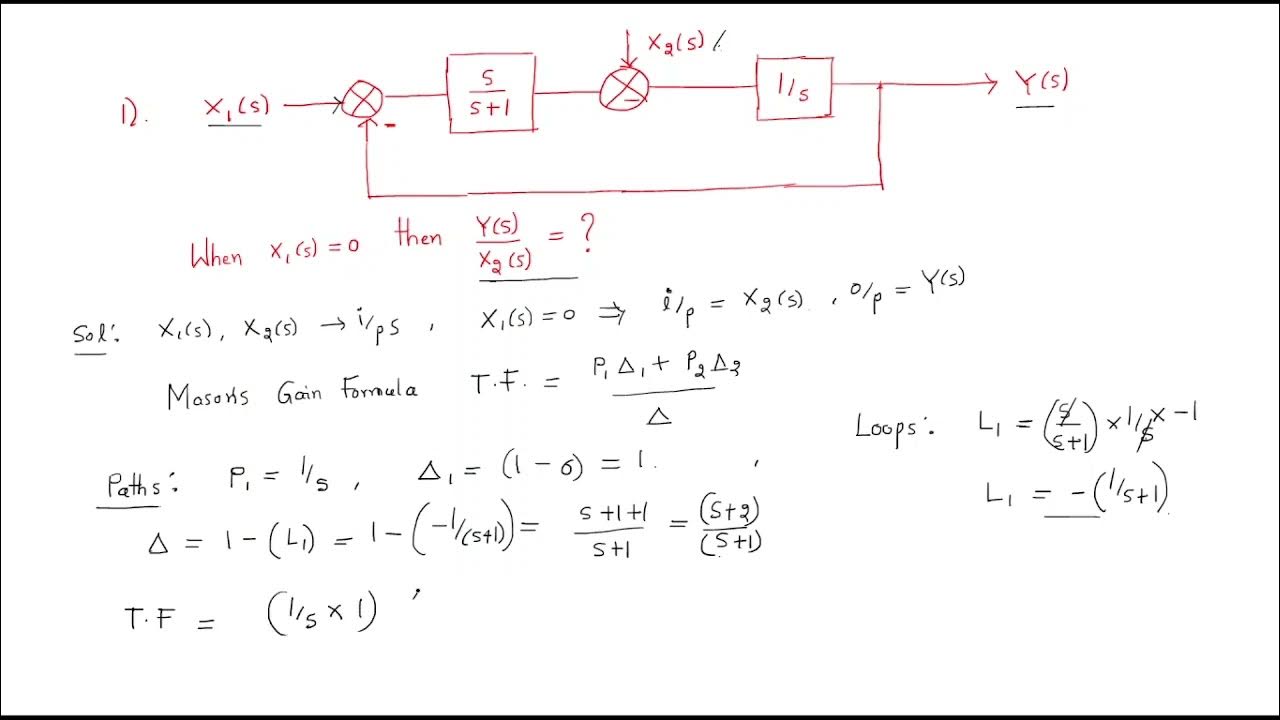 X₂(s) /
1). X₁(s) - s/(s+1) - 1/s Y(s)
When X₁(s) = 0 then Y(s)/X₂(s) = ?
Sol: X₁(s), X₂(s) → i/ps, X₁(s) = 0 ⇒ i/p = X₂(s), o/p = Y(s)
Mason's Gain Formula T.F. = (P₁ Δ₁ + P₂ Δ₂)/Δ
Loops: L₁ = (s/(s+1)) × 1/s × -1
Paths: P₁ = 1/s, Δ₁ = (1 - 0) = 1.
L₁ = -(1/s+1)
Δ = 1 - (L₁) = 1 - (-1/(s+1)) = (s+1+1)/(s+1) = (s+2)/(s+1)
T.F = (1/s × 1)